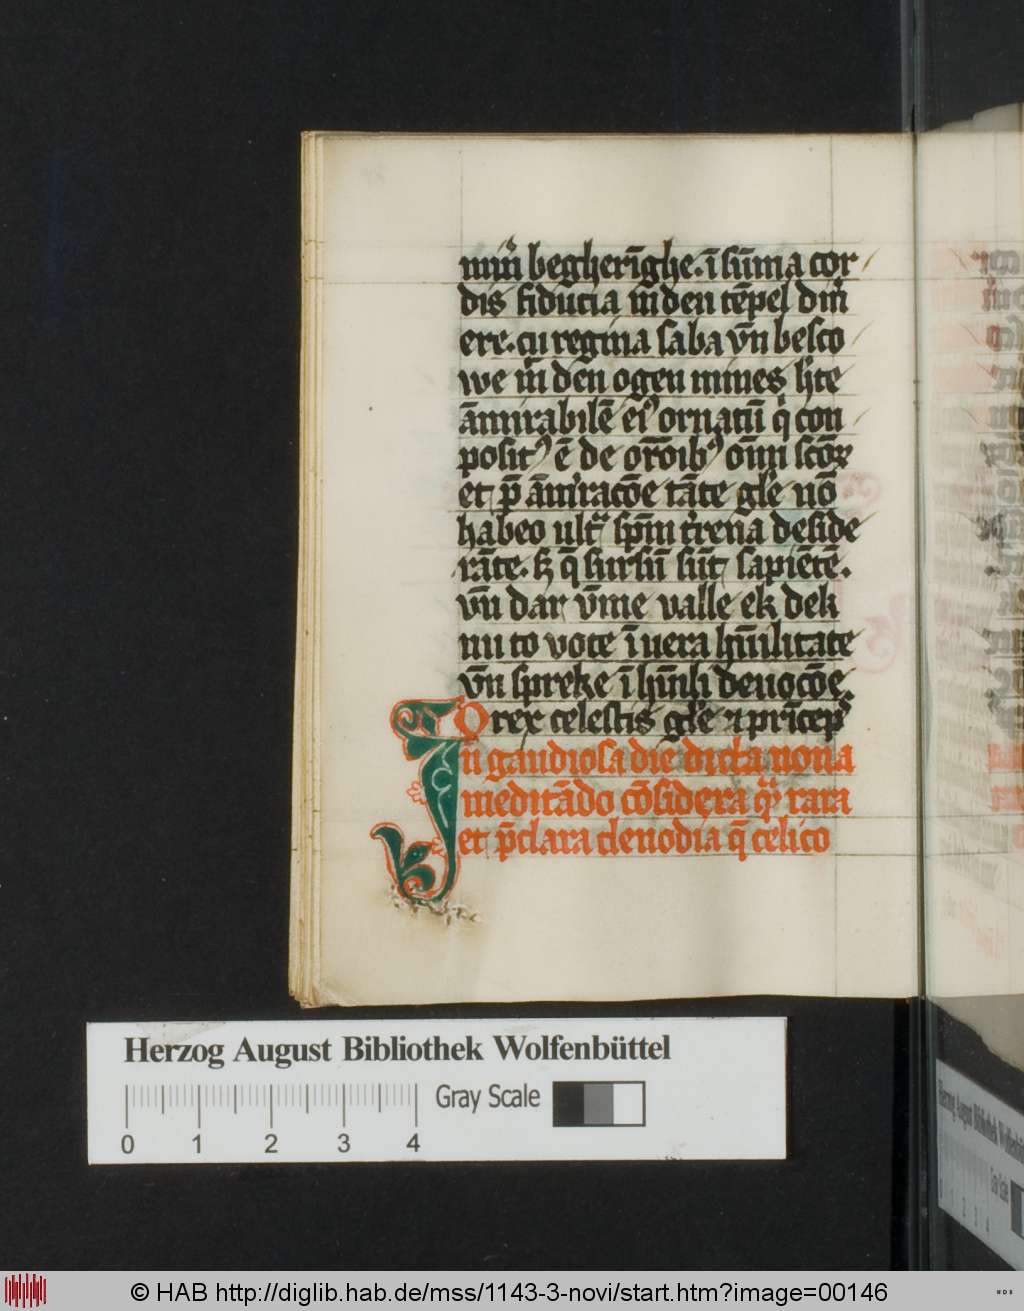 mīn̄ begherīghe. ī sūma cor
dis fiducia in den tēpel dm̄
ere. cū regina saba vn̄ besco
we m̄ den ogen mines h'te
āmirabilē ei⁹ ornatū q̇ con
posit⁹ ē de orōib⁹ om̄i scōꝝ
et p̄ āmiracōe tāte gl'e nō
habeo ultᵃ sp̄m t'rena deside
rāte. sꝫ q̄ sursū sūt sapiētē.
vn̄ dar vm̄e valle ek dek
nu to vote ī uera hūilitate
vn̄ spreke ī hūili deuocōe.
O rex celestis gl'e ⁊ prīcep⁹
In gaudiosa die dicta nona
meditādo cōsidera qᵃ rara
et p̄clara clenodia q̄ celico
Herzog August Bibliothek Wolfenbüttel
0 1 2 3 4
Gray Scale
© HAB http://diglib.hab.de/mss/1143-3-novi/start.htm?image=00146